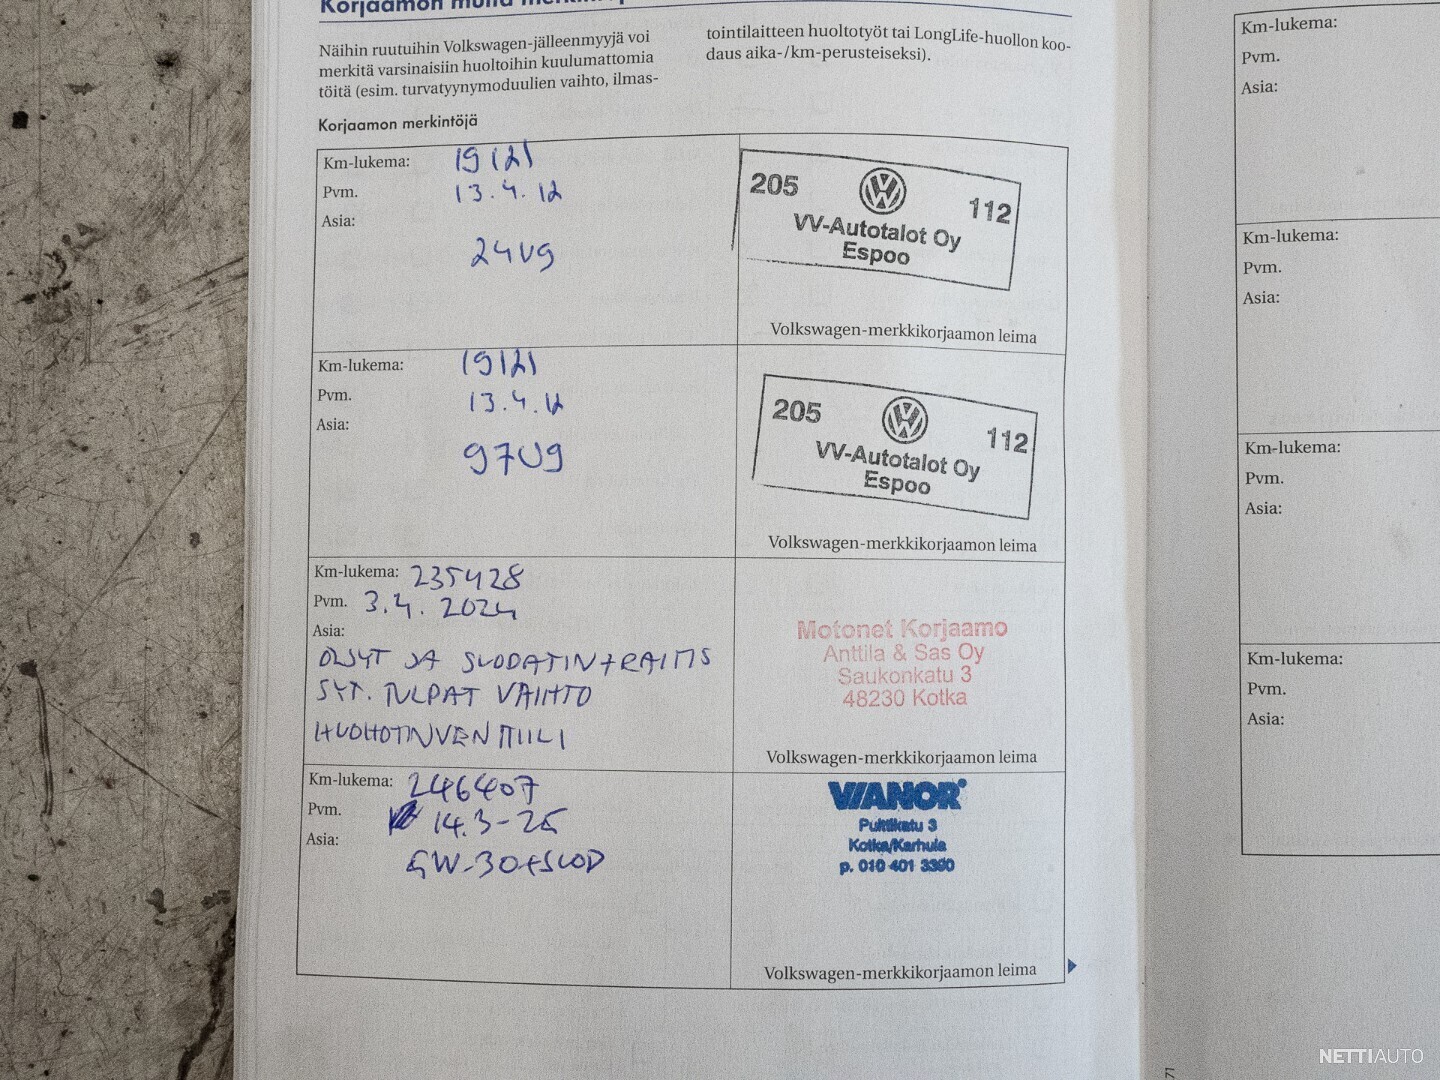 Näihin ruutuihin Volkswagen-jälleenmyyjä voi
merkitä varsinaisiin huoltoihin kuulumattomia
töitä (esim. turvatyynymoduulien vaihto, ilmas-
tointilaitteen huoltotyöt tai LongLife-huollon koo-
daus aika-/km-perusteiseksi).
Korjaamon merkintöjä
Km-lukema: 19121
Pvm. 13.4.12
Asia:
24U9
205 112
VV-Autotalot Oy
Espoo
Volkswagen-merkkikorjaamon leima
Km-lukema: 19121
Pvm. 13.4.12
Asia:
97U9
205 112
VV-Autotalot Oy
Espoo
Volkswagen-merkkikorjaamon leima
Km-lukema: 235428
Pvm. 3.4.2024
Asia:
ÖLJYT JA SUODATIN + RAITIS
SYT. TULPAT VAIHTO
HUOHOTINVENTTIILI
Motonet Korjaamo
Anttila & Sas Oy
Saukonkatu 3
48230 Kotka
Volkswagen-merkkikorjaamon leima
Km-lukema: 246407
Pvm. 14.3-25
Asia:
5W-30+SUOD
VIANOR
Puttikatu 3
Kotka/Karhula
p. 010 401 3390
Volkswagen-merkkikorjaamon leima
Km-lukema:
Pvm.
Asia:
Km-lukema:
Pvm.
Asia:
Km-lukema:
Pvm.
Asia:
Km-lukema:
Pvm.
Asia:
NETTIAUTO